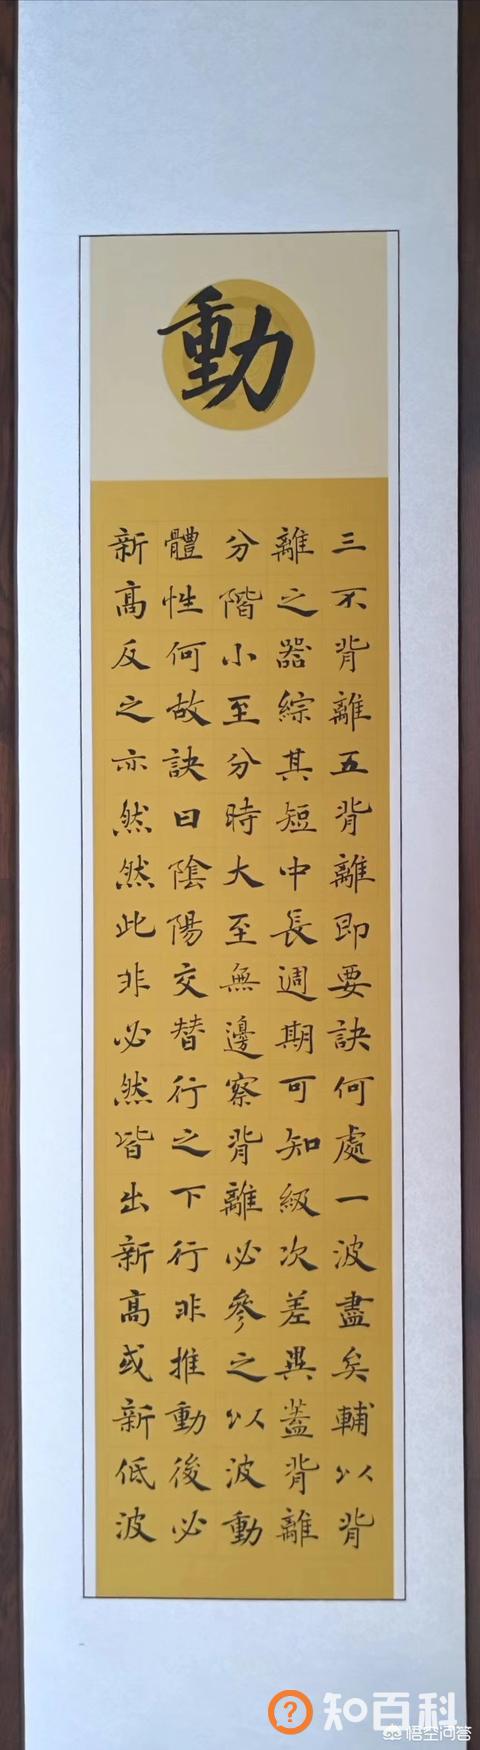 動
三不背離五背離即要訣何處一波盡矣輔以背
離之器綜其短中長週期可知級次差異蓋背離
分階小至分時大至無邊察背離必參之以波動
體性何故訣曰陰陽交替行之下行非推動後必
新高反之亦然然此非必然皆出新高或新低波
知百科
悟空问答